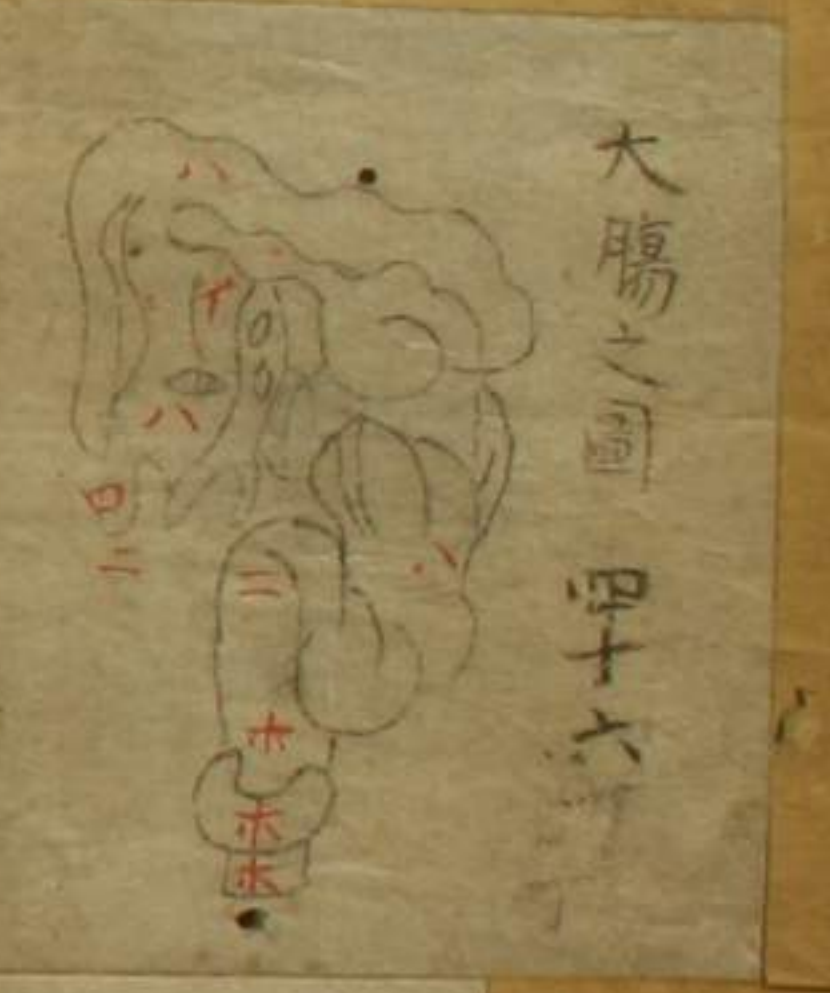 大腸之圖 四十六
ハ
イ
ハ
四
二
ハ
ニ
ホ
ホ
ホ